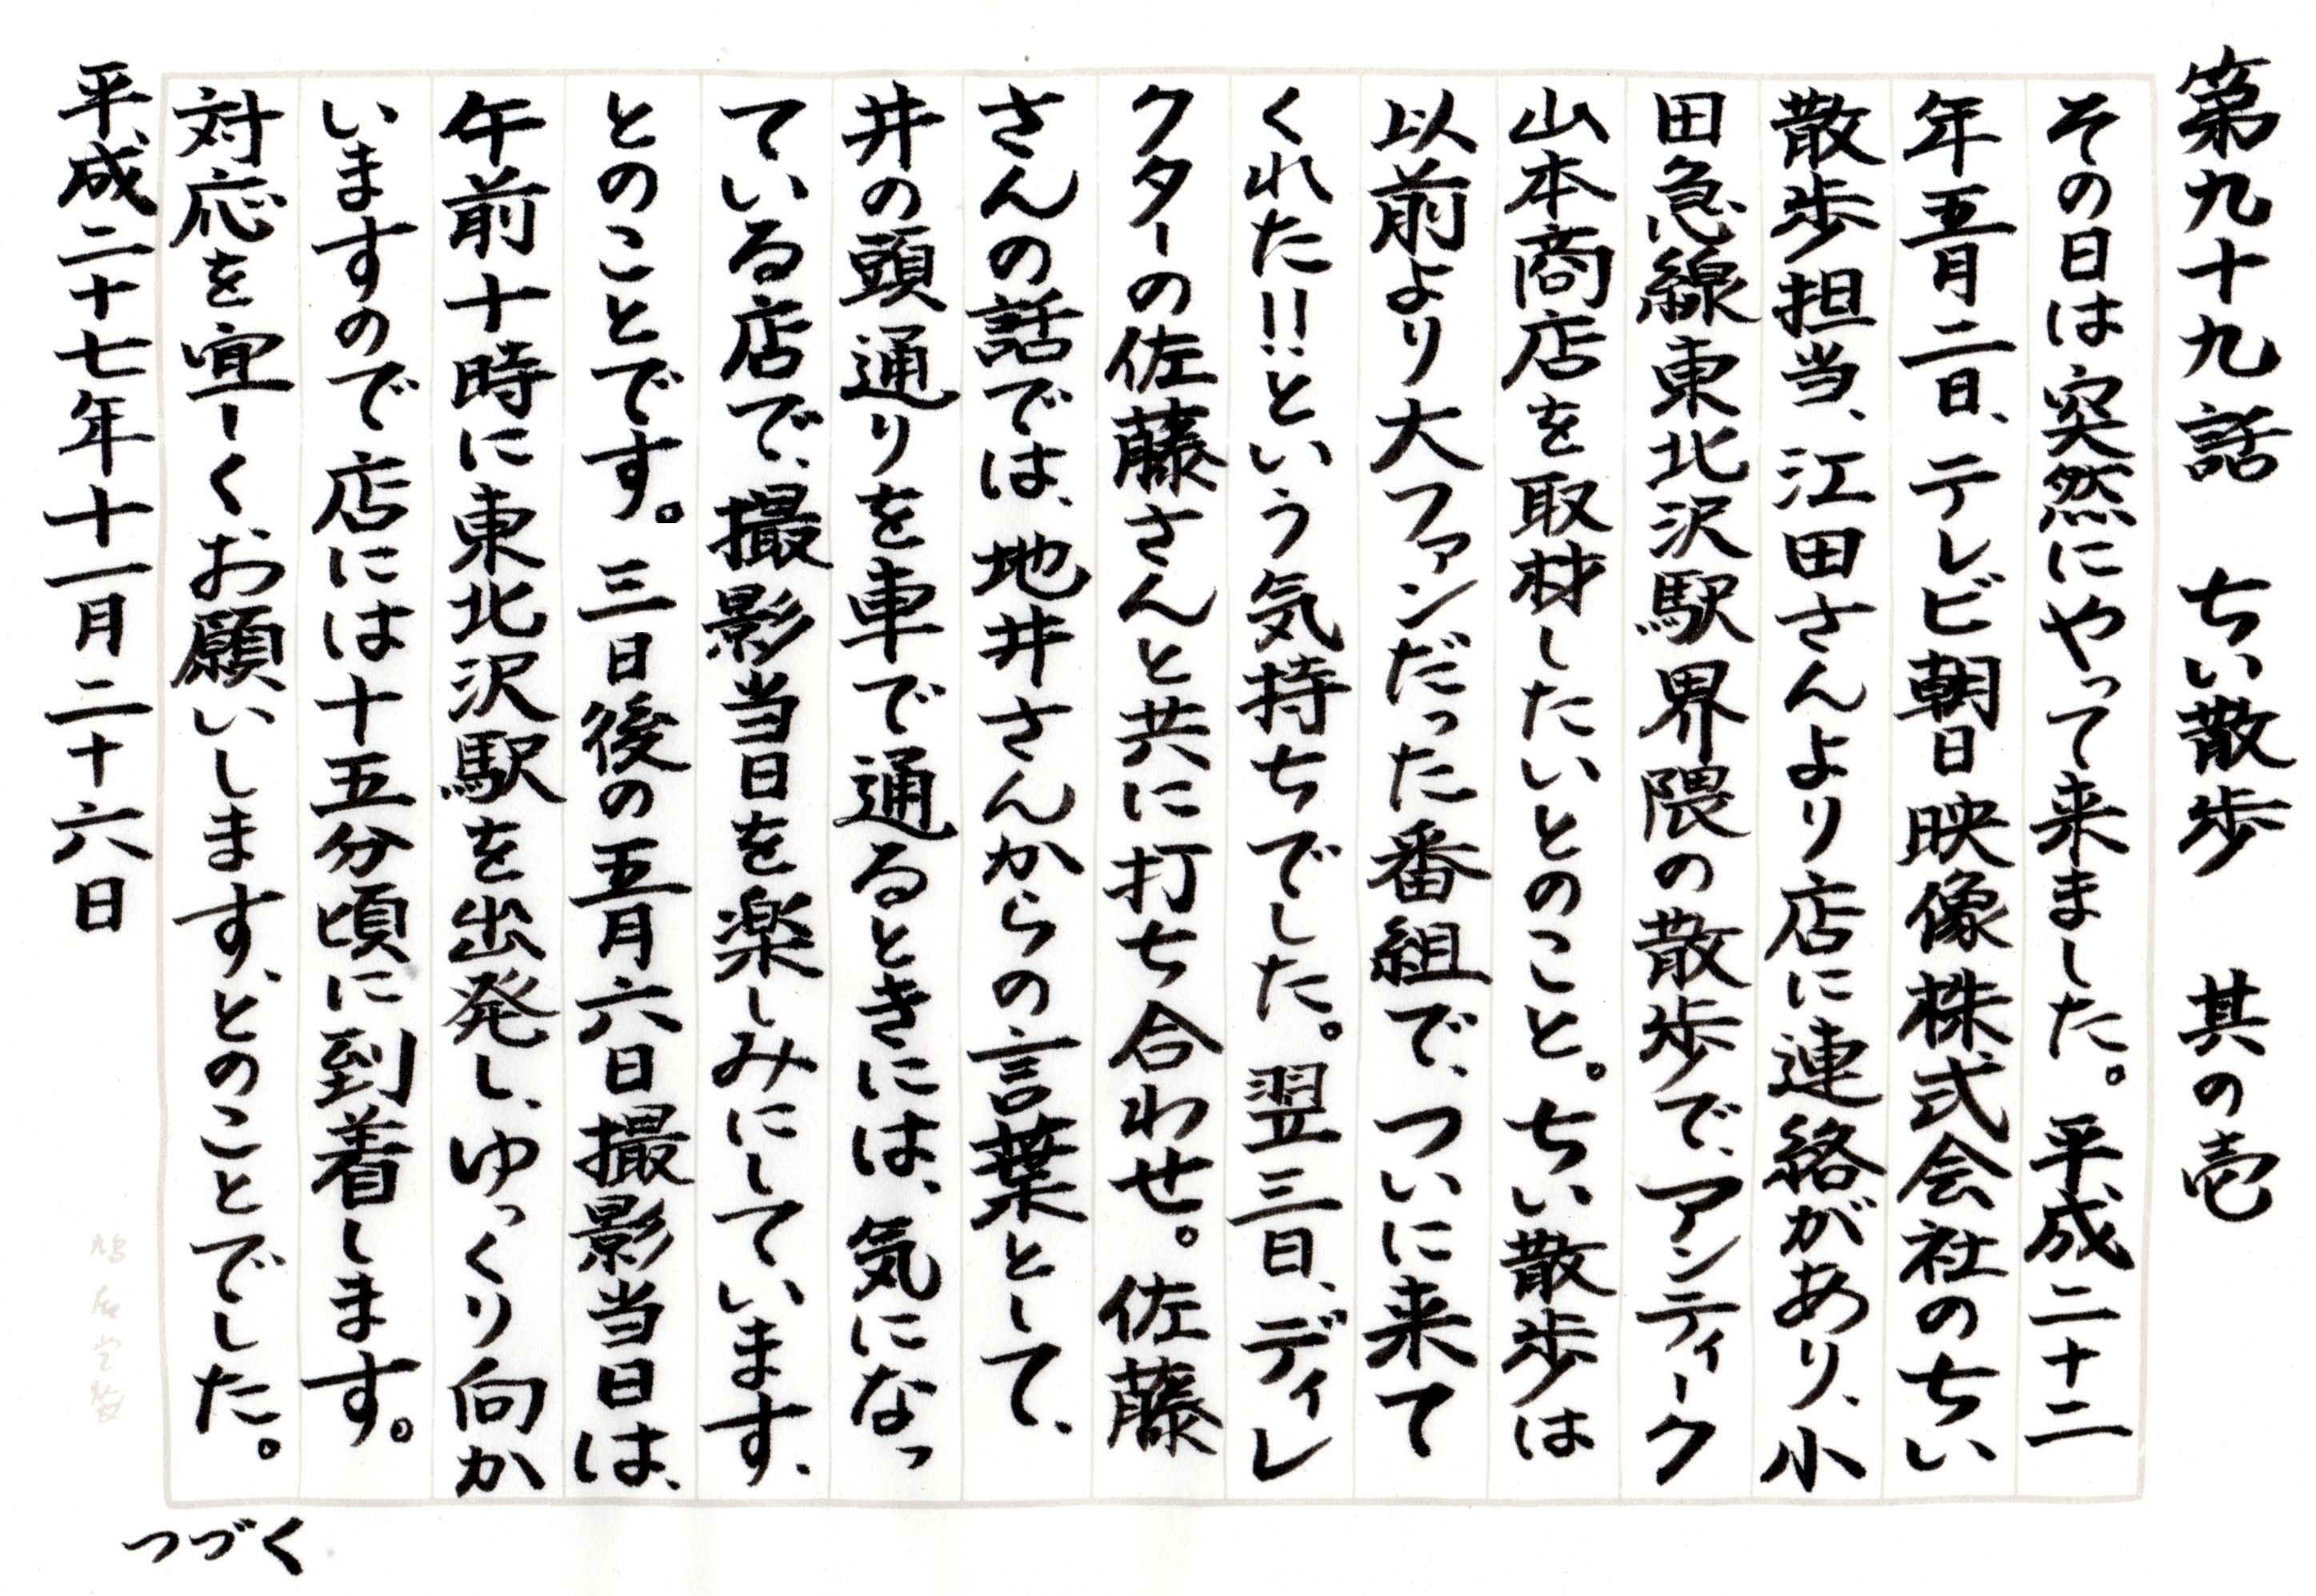 第九十九話　ちい散歩　其の壱
その日は突然にやって来ました。平成二十二
年五月二日、テレビ朝日映像株式会社のちい
散歩担当、江田さんより店に連絡があり、小
田急線東北沢駅界隈の散歩で、アンティーク
山本商店を取材したいとのこと。ちい散歩は
以前より大ファンだった番組で、ついに来て
くれた!!という気持ちでした。翌三日、ディレ
クターの佐藤さんと共に打ち合わせ。佐藤
さんの話では、地井さんからの言葉として、
井の頭通りを車で通るときには、気になっ
ている店で、撮影当日を楽しみにしています、
とのことです。三日後の五月六日撮影当日は、
午前十時に東北沢駅を出発し、ゆっくり向か
いますので店には十五分頃に到着します。
対応を宜しくお願いします、とのことでした。
平成二十七年十一月二十六日
つづく